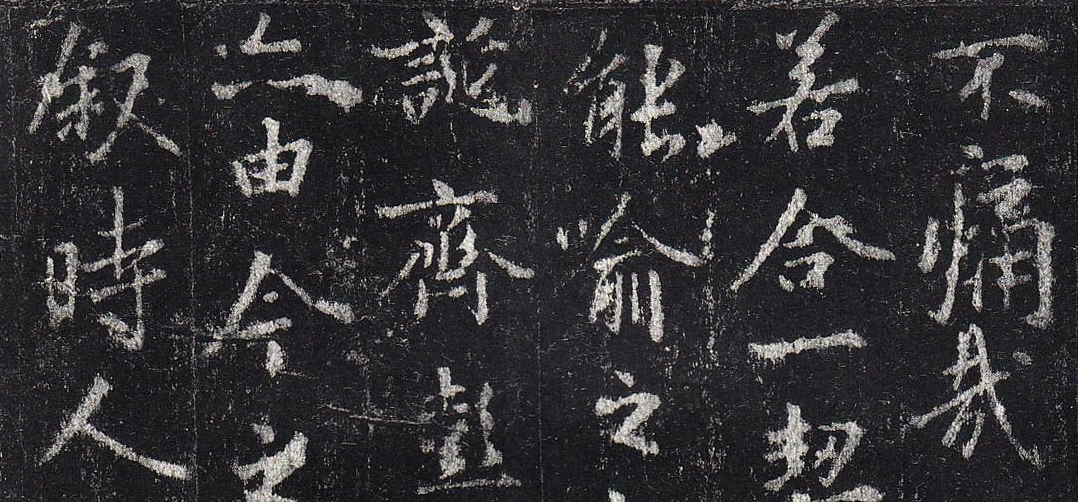 不痛哉
若合一契
能喻之
誕齊彭
亦由今之
叙時人